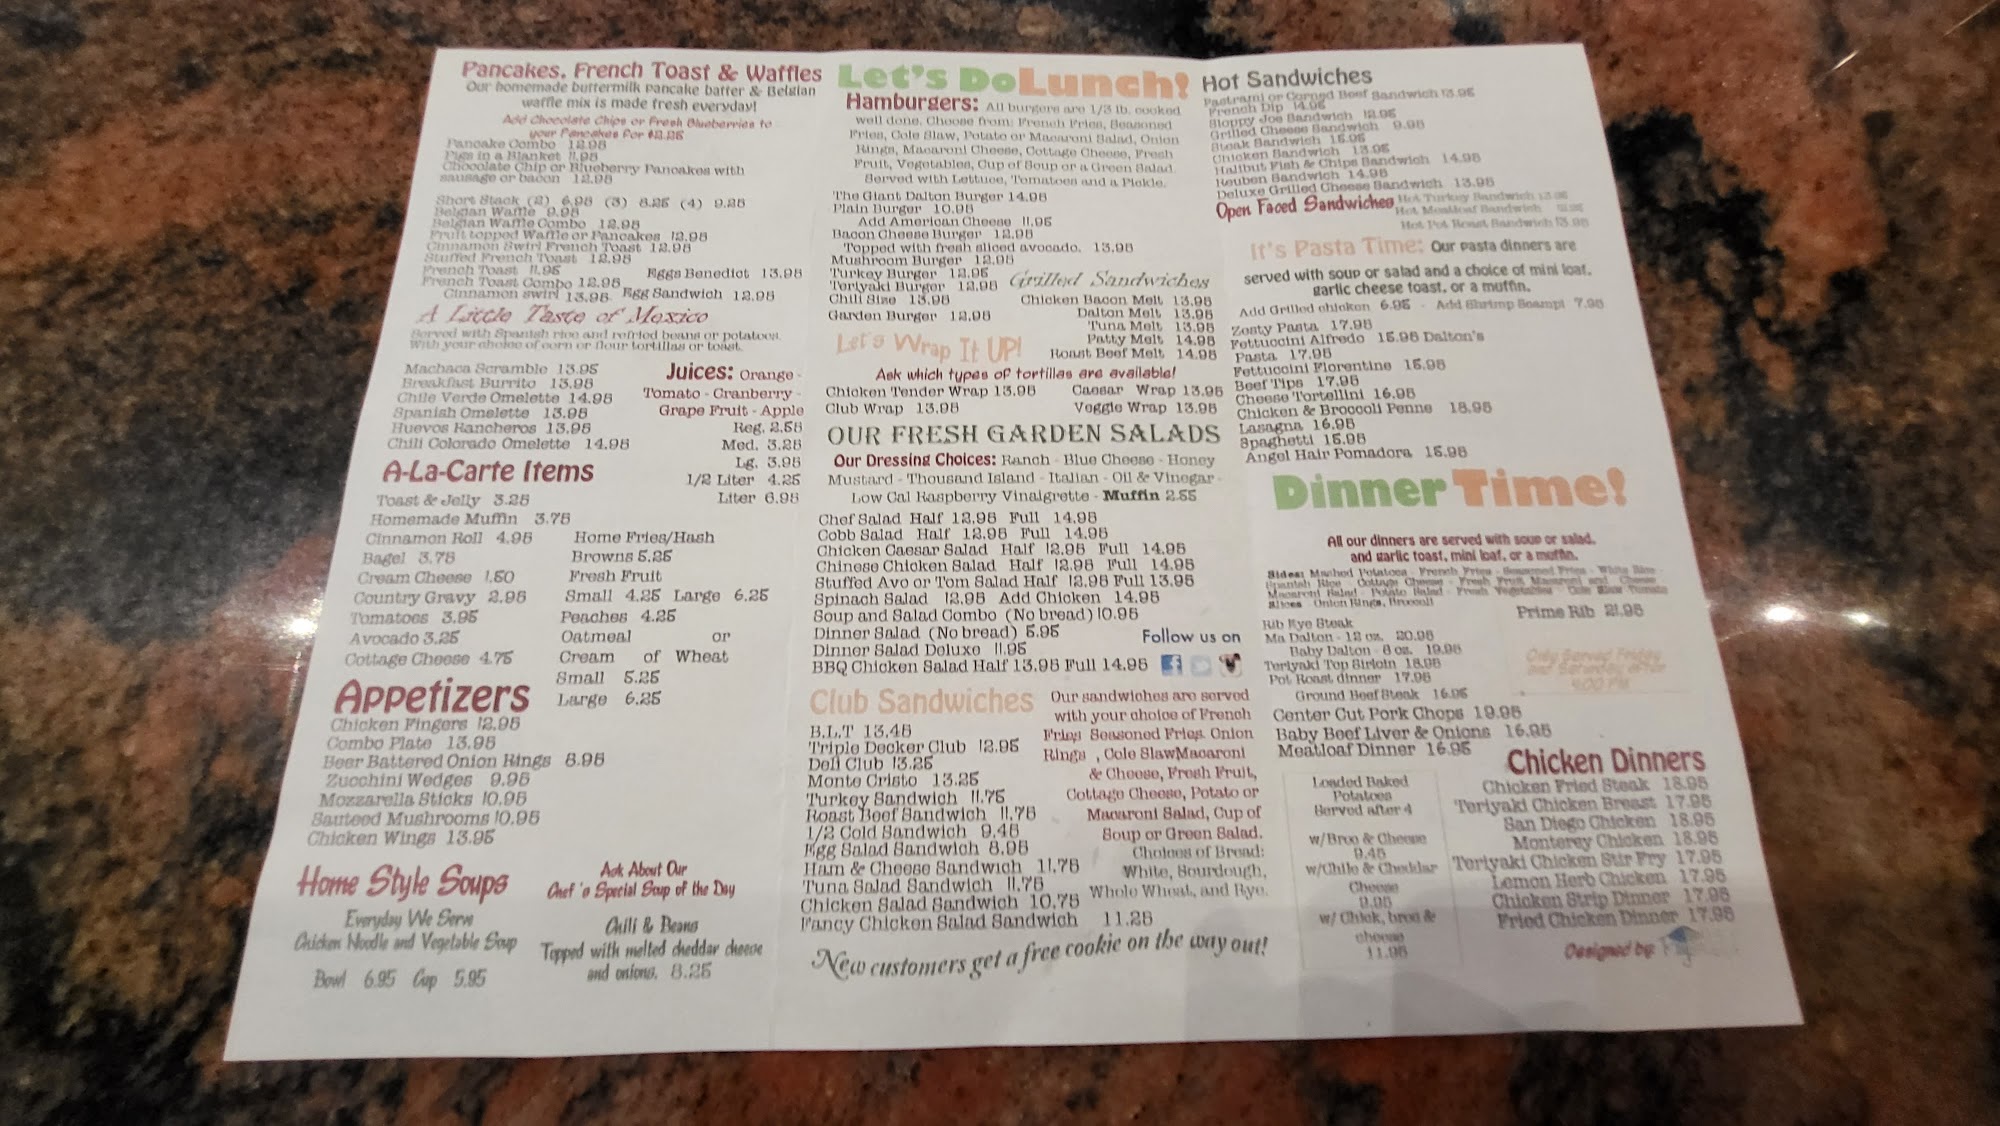 Pancakes, French Toast & Waffles
Our homemade buttermilk pancake batter & Belgian
waffle mix is made fresh everyday!
Add Chocolate Chips or Fresh Blueberries to
your Pancakes for $2.25
Pancake Combo 12.95
Pigs in a Blanket 11.95
Chocolate Chip or Blueberry Pancakes with
sausage or bacon 12.95
Short Stack (2) 6.95 (3) 8.25 (4) 9.25
Belgian Waffle 9.95
Belgian Waffle Combo 12.95
Fruit topped Waffle or Pancakes 12.95
Cinnamon Swirl French Toast 12.95
Stuffed French Toast 12.95
French Toast 11.95
French Toast Combo 12.95
Cinnamon swirl 13.95
Eggs Benedict 13.95
Egg Sandwich 12.95
A Little Taste of Mexico
Served with Spanish rice and refried beans or potatoes.
With your choice of corn or flour tortillas or toast.
Machaca Scramble 13.95
Breakfast Burrito 13.95
Chile Verde Omelette 14.95
Spanish Omelette 13.95
Huevos Rancheros 13.95
Chili Colorado Omelette 14.95
Juices: Orange -
Tomato - Cranberry -
Grape Fruit - Apple
Reg. 2.55
Med. 3.25
Lg. 3.95
1/2 Liter 4.25
Liter 6.95
A-La-Carte Items
Toast & Jelly 3.25
Homemade Muffin 3.75
Cinnamon Roll 4.95
Bagel 3.75
Cream Cheese 1.50
Country Gravy 2.95
Tomatoes 3.95
Avocado 3.25
Cottage Cheese 4.75
Home Fries/Hash
Browns 5.25
Fresh Fruit
Small 4.25 Large 6.25
Peaches 4.25
Oatmeal or
Cream of Wheat
Small 5.25
Large 6.25
Appetizers
Chicken Fingers 12.95
Combo Plate 13.95
Beer Battered Onion Rings 8.95
Zucchini Wedges 9.95
Mozzarella Sticks 10.95
Sauteed Mushrooms 10.95
Chicken Wings 13.95
Home Style Soups
Everyday We Serve
Chicken Noodle and Vegetable Soup
Bowl 6.95 Cup 5.95
Ask About Our
Chef's Special Soup of the Day
Chili & Beans
Topped with melted cheddar cheese
and onions. 8.25
Let's Do Lunch!
Hamburgers: All burgers are 1/3 lb. cooked
well done. Choose from: French Fries, Seasoned
Fries, Cole Slaw, Potato or Macaroni Salad, Onion
Rings, Macaroni Cheese, Cottage Cheese, Fresh
Fruit, Vegetables, Cup of Soup or a Green Salad.
Served with Lettuce, Tomatoes and a Pickle.
The Giant Dalton Burger 14.95
Plain Burger 10.95
Add American Cheese 11.95
Bacon Cheese Burger 12.95
Topped with fresh sliced avocado. 13.95
Mushroom Burger 12.95
Turkey Burger 12.95
Teriyaki Burger 12.95
Chili Size 13.95
Garden Burger 12.95
Grilled Sandwiches
Chicken Bacon Melt 13.95
Dalton Melt 13.95
Tuna Melt 13.95
Patty Melt 14.95
Roast Beef Melt 14.95
Let's Wrap It UP!
Ask which types of tortillas are available!
Chicken Tender Wrap 13.95 Caesar Wrap 13.95
Club Wrap 13.95 Veggie Wrap 13.95
OUR FRESH GARDEN SALADS
Our Dressing Choices: Ranch - Blue Cheese - Honey
Mustard - Thousand Island - Italian - Oil & Vinegar -
Low Cal Raspberry Vinaigrette - Muffin 2.55
Chef Salad Half 12.95 Full 14.95
Cobb Salad Half 12.95 Full 14.95
Chicken Caesar Salad Half 12.95 Full 14.95
Chinese Chicken Salad Half 12.95 Full 14.95
Stuffed Avo or Tom Salad Half 12.95 Full 13.95
Spinach Salad 12.95 Add Chicken 14.95
Soup and Salad Combo (No bread) 10.95
Dinner Salad (No bread) 5.95
Dinner Salad Deluxe 11.95
BBQ Chicken Salad Half 13.95 Full 14.95
Follow us on
Club Sandwiches
B.L.T 13.45
Triple Decker Club 12.95
Deli Club 13.25
Monte Cristo 13.25
Turkey Sandwich 11.75
Roast Beef Sandwich 11.75
1/2 Cold Sandwich 9.45
Egg Salad Sandwich 8.95
Ham & Cheese Sandwich 11.75
Tuna Salad Sandwich 11.75
Chicken Salad Sandwich 10.75
Fancy Chicken Salad Sandwich 11.25
Our sandwiches are served
with your choice of French
Fries Seasoned Fries, Onion
Rings , Cole SlawMacaroni
& Cheese, Fresh Fruit,
Cottage Cheese, Potato or
Macaroni Salad, Cup of
Soup or Green Salad.
Choices of Bread:
White, Sourdough,
Whole Wheat, and Rye.
New customers get a free cookie on the way out!
Hot Sandwiches
Pastrami or Corned Beef Sandwich 13.95
French Dip 14.95
Sloppy Joe Sandwich 12.95
Grilled Cheese Sandwich 9.95
Steak Sandwich 15.95
Chicken Sandwich 13.95
Halibut Fish & Chips Sandwich 14.95
Reuben Sandwich 14.95
Deluxe Grilled Cheese Sandwich 13.95
Open Faced Sandwiches Hot Turkey Sandwich
Hot Meatloaf Sandwich
Hot Pot Roast Sandwich 13.95
It's Pasta Time: Our pasta dinners are
served with soup or salad and a choice of mini loaf,
garlic cheese toast, or a muffin.
Add Grilled chicken 6.95 - Add Shrimp Scampi 7.95
Zesty Pasta 17.95
Fettuccini Alfredo 15.95 Dalton's
Pasta 17.95
Fettuccini Florentine 15.95
Beef Tips 17.95
Cheese Tortellini 16.95
Chicken & Broccoli Penne 18.95
Lasagna 16.95
Spaghetti 15.95
Angel Hair Pomadora 15.95
Dinner Time!
All our dinners are served with soup or salad,
and garlic toast, mini loaf, or a muffin.
Sides: Mashed Potatoes - French Fries - Seasoned Fries - White Rice -
Spanish Rice - Cottage Cheese - Fresh Fruit Macaroni and Cheese
Macaroni Salad - Potato Salad - Fresh Vegetables - Cole Slaw Tomato
Slices Onion Rings, Broccoli
Prime Rib 21.95
Only Served Friday
and Saturday after
4:00 PM
Rib Eye Steak
Ma Dalton - 12 oz. 20.95
Baby Dalton - 8 oz. 19.95
Teriyaki Top Sirloin 18.95
Pot Roast dinner 17.95
Ground Beef Steak 16.95
Center Cut Pork Chops 19.95
Baby Beef Liver & Onions 16.95
Meatloaf Dinner 16.95
Loaded Baked
Potatoes
Served after 4
w/Broc & Cheese
9.45
w/Chile & Cheddar
Cheese
9.95
w/ Chick, broc &
cheese
11.95
Chicken Dinners
Chicken Fried Steak 18.95
Teriyaki Chicken Breast 17.95
San Diego Chicken 18.95
Monterey Chicken 18.95
Teriyaki Chicken Stir Fry 17.95
Lemon Herb Chicken 17.95
Chicken Strip Dinner 17.95
Fried Chicken Dinner 17.95
Designed by: